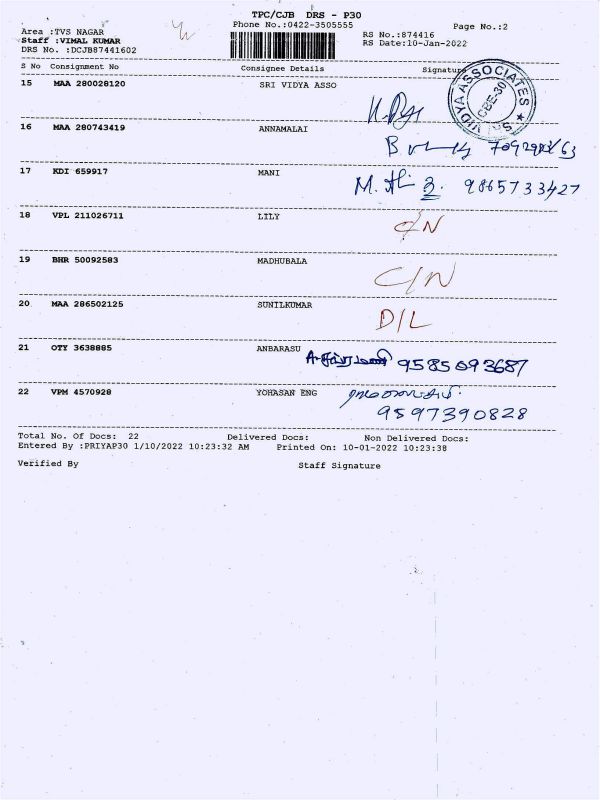 TPC/CJB DRS - P30
Phone No.:0422-3505555
Page No.:2
Area :TVS NAGAR
Staff :VIMAL KUMAR
DRS No. :DCJB87441602
RS No.:874416
RS Date:10-Jan-2022
S No Consignment No Consignee Details Signature
15 MAA 280028120 SRI VIDYA ASSO
SRI VIDYA ASSOCIATES ★ CBE-30
16 MAA 280743419 ANNAMALAI
17 KDI 659917 MANI
9865733427
18 VPL 211026711 LILY
C/N
19 BHR 50092583 MADHUBALA
C/N
20 MAA 286502125 SUNILKUMAR
D/L
21 OTY 3638885 ANBARASU
9585093687
22 VPM 4570928 YOHASAN ENG
9597390828
Total No. Of Docs: 22 Delivered Docs: Non Delivered Docs:
Entered By :PRIYAP30 1/10/2022 10:23:32 AM Printed On: 10-01-2022 10:23:38
Verified By Staff Signature